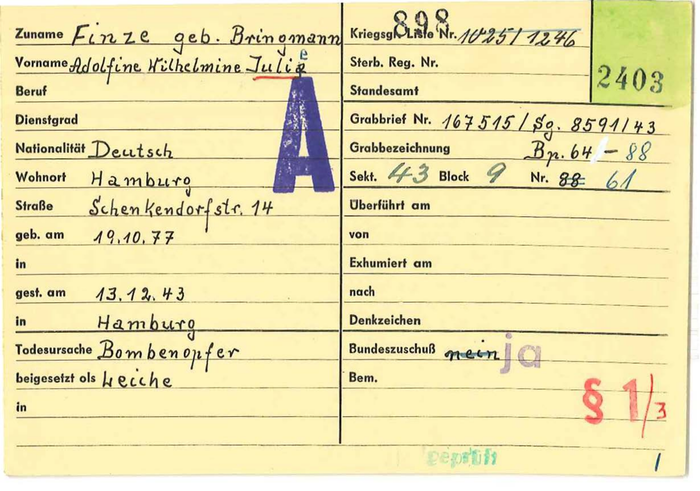 898
Zuname Finze geb. Bringmann
Kriegsgr. Liste Nr. 1025/1246
Vorname Adolfine Wilhelmine Julie
Sterb. Reg. Nr.
2403
Beruf
Standesamt
Dienstgrad
Grabbrief Nr. 167515/Sg. 8591/43
Nationalität Deutsch
Grabbezeichnung Bp. 64 - 88
A
Wohnort Hamburg
Sekt. 43 Block 9 Nr. 88 61
Straße Schenkendorfstr. 14
Überführt am
geb. am 19.10.77
von
in
Exhumiert am
gest. am 13.12.43
nach
in Hamburg
Denkzeichen
Todesursache Bombenopfer
Bundeszuschuß nein ja
beigesetzt als Leiche
Bem.
§ 1/3
in
geprüft
1